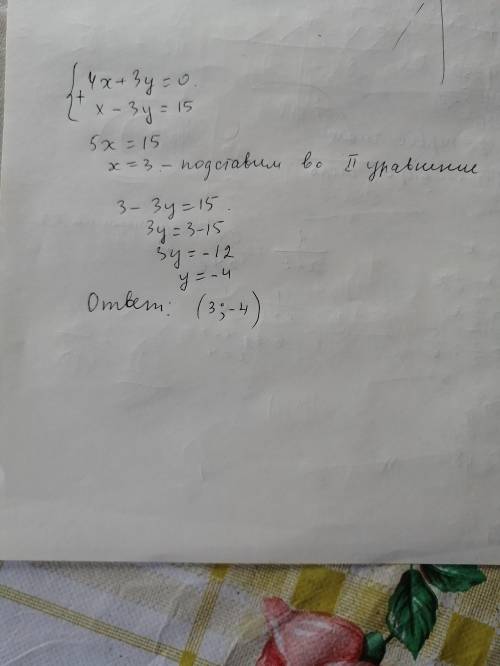 { 4x + 3y = 0.
+ x - 3y = 15
5x = 15
x = 3 - подставим во II уравнение
3 - 3y = 15.
3y = 3-15
3y = -12
y = -4
Ответ: (3; -4)